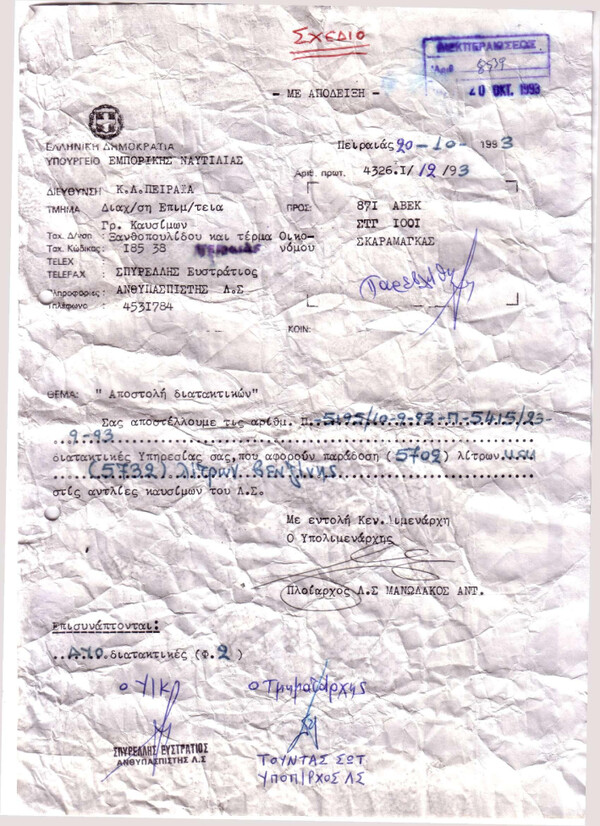 ΣΧΕΔΙΟ
ΔΙΕΚΠΕΡΑΙΩΣΕΩΣ
Αριθ 8539
20 ΟΚΤ. 1993
- ΜΕ ΑΠΟΔΕΙΞΗ -
ΕΛΛΗΝΙΚΗ ΔΗΜΟΚΡΑΤΙΑ
ΥΠΟΥΡΓΕΙΟ ΕΜΠΟΡΙΚΗΣ ΝΑΥΤΙΛΙΑΣ
Πειραιάς 20-10- 1993
Αριθ. πρωτ. 4326.Ι/12/93
ΔΙΕΥΘΥΝΣΗ : Κ.Λ.ΠΕΙΡΑΙΑ
ΤΜΗΜΑ : Διαχ/ση Επιμ/τεια
Γρ. Καυσίμων
Ταχ. Δ/νση : Ξανθοπουλίδου και τέρμα Οικο-
νόμου
Ταχ. Κώδικας : Ι85 38 Πειραιάς
TELEX
TELEFAX : ΣΠΥΡΕΛΛΗΣ Ευστράτιος
Πληροφορίες : ΑΝΘΥΠΑΣΠΙΣΤΗΣ Λ.Σ
Τηλέφωνο : 453Ι784
ΠΡΟΣ: 87Ι ΑΒΕΚ
ΣΤΓ ΙΟΟΙ
ΣΚΑΡΑΜΑΓΚΑΣ
Παρελήφθη
ΚΟΙΝ:
ΘΕΜΑ: " Αποστολή διατακτικών"
Σας αποστέλλουμε τις αριθμ. Π.-5195/10-9-93-Π-5415/23-
-9-93
διατακτικές Υπηρεσίας σας,που αφορούν παράδοση (5702) λίτρων και
(5732) λίτρων βενζίνης
στίς αντλίες καυσίμων του Λ.Σ.
Με εντολή Κεν.Λιμενάρχη
Ο Υπολιμενάρχης
Πλοίαρχος Λ.Σ ΜΑΝΩΛΑΚΟΣ ΑΝΤ.
Επισυνάπτονται:
..ΔΥΟ.διατακτικές (Φ.2 )
Ο Τμηματάρχης
ΣΠΥΡΕΛΛΗΣ ΕΥΣΤΡΑΤΙΟΣ
ΑΝΘΥΠΑΣΠΙΣΤΗΣ Λ.Σ
ΤΟΥΝΤΑΣ ΣΩΤ
ΥΠΟΠ/ΡΧΟΣ ΛΣ